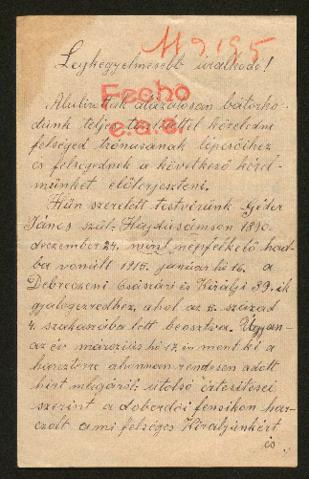 M 9.195
Legkegyelmesebb uralkodó!
Fecho
e.a.a.
Alulirottak alázatosan bátorko-
dunk teljes tisztelettel közeledni
felséged trónusának lépcsőihez
és felségednek a következő kérel-
münket előterjeszteni.
Hűn szeretett testvérünk Géder
János szül. Hajdúsámson 1890.
deczember 24. mint népfelkelő had-
ba vonult 1915. január hó 16. a
Debreczeni Császári és Királyi 39.ik
gyalogezredhez, ahol az 8. század
4. szakaszába lett beosztva. Ugyan-
az év márczius hó 17.én ment ki a
harcztérre ahonnan rendesen adott
hírt magáról. utolsó értesítései
szerint a doberdói fensíkon har-
czolt a mi felséges Királyunkért
és